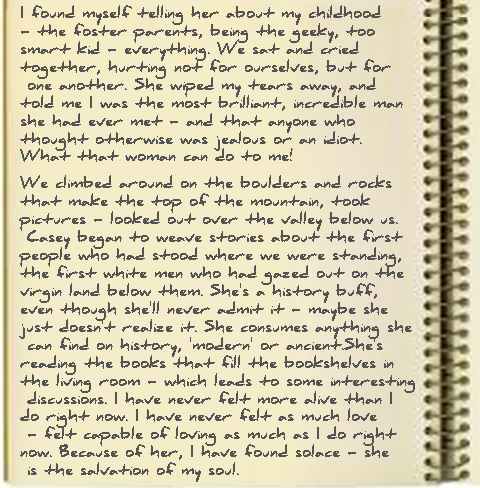 I found myself telling her about my childhood
- the foster parents, being the geeky, too
smart kid - everything. We sat and cried
together, hurting not for ourselves, but for
one another. She wiped my tears away, and
told me I was the most brilliant, incredible man
she had ever met - and that anyone who
thought otherwise was jealous or an idiot.
What that woman can do to me!
We climbed around on the boulders and rocks
that make the top of the mountain, took
pictures - looked out over the valley below us.
Casey began to weave stories about the first
people who had stood where we were standing,
the first white men who had gazed out on the
virgin land below them. She's a history buff,
even though she'll never admit it - maybe she
just doesn't realize it. She consumes anything she
can find on history, 'modern' or ancient.She's
reading the books that fill the bookshelves in
the living room - which leads to some interesting
discussions. I have never felt more alive than I
do right now. I have never felt as much love
- felt capable of loving as much as I do right
now. Because of her, I have found solace - she
is the salvation of my soul.